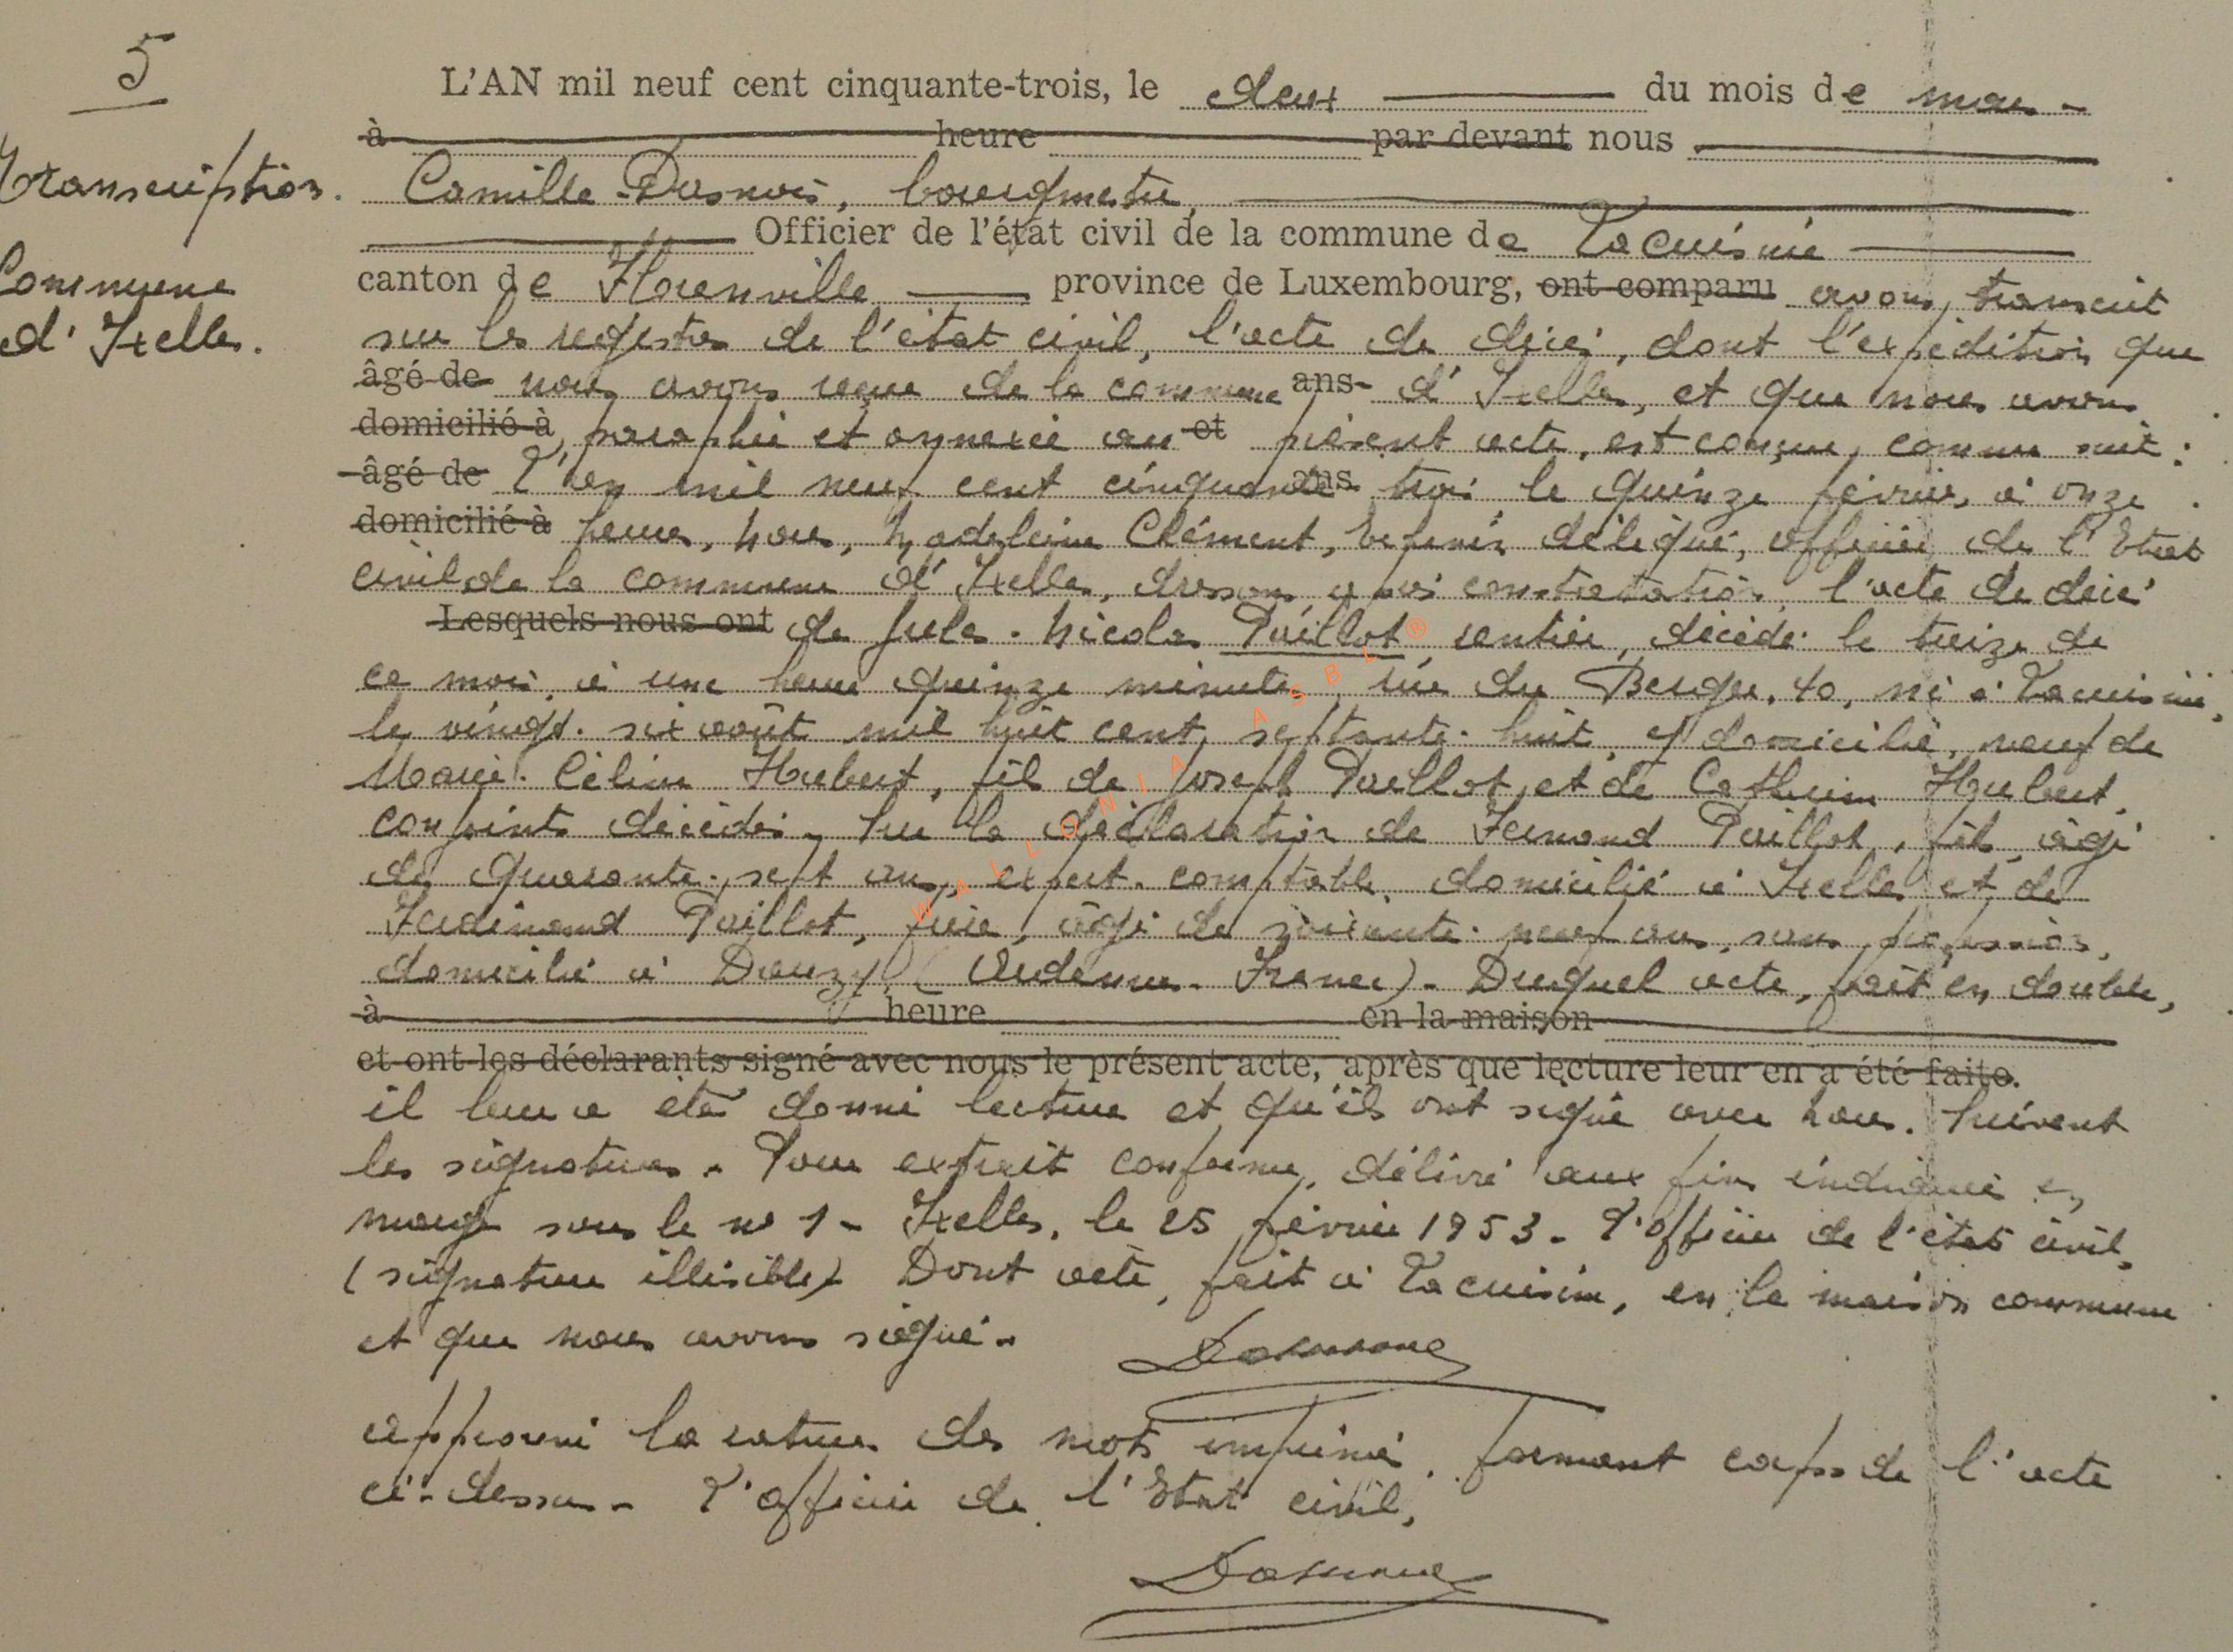 5
Transcription.
Commune
d'Ixelles.
L'AN mil neuf cent cinquante-trois, le deux du mois de mars
à heure par devant nous
Camille Dasnois, bourgmestre,
Officier de l'état civil de la commune de Lacuisine
canton de Florenville province de Luxembourg, ont comparu avons transcrit
sur les registres de l'état civil, l'acte de décès, dont l'expédition que
âgé de nous avons reçue de la commune ans d'Ixelles, et que nous avons
domicilié à paraphée et annexée au et présent acte, est conçue, comme suit :
âgé de L'an mil neuf cent cinquante ans trois le quinze février, à onze
domicilié à heures, Nous, Madeleine Clément, Echevin délégué, officier de l'Etat
civil de la commune d'Ixelles, dressons après constatation, l'acte de décès
Lesquels nous ont de Jules-Nicolas Paillot, rentier, décédé le treize de
ce mois, à une heure quinze minutes, rue du Berger, 40, né à Lacuisine,
le vingt-six août mil huit cent septante-huit, y domicilié, veuf de
Marie-Céline Hubert, fils de Joseph Paillot et de Catherine Hubert,
conjoints décédés. Sur la déclaration de Fernand Paillot, fils, âgé
de quarante-sept ans, expert-comptable, domicilié à Ixelles et de
Ferdinand Paillot, frère, âgé de soixante-neuf ans, sans profession,
domicilié à Douzy, (Ardennes-France). Duquel acte, fait en double,
à heure en la maison
et ont les déclarants signé avec nous le présent acte, après que lecture leur en a été faite.
il leur a été donné lecture et qu'ils ont signé avec Nous. Suivent
les signatures. Pour extrait conforme, délivré aux fins indiquées en
marge sous le no 1 - Ixelles, le 25 février 1953. L'officier de l'état civil,
(signature illisible) Dont acte, fait à Lacuisine, en la maison commune
et que nous avons signé.
approuvé la rature des mots imprimés, formant corps de l'acte
ci-dessus. L'officier de l'Etat civil,
WALLONIA ASBL ®